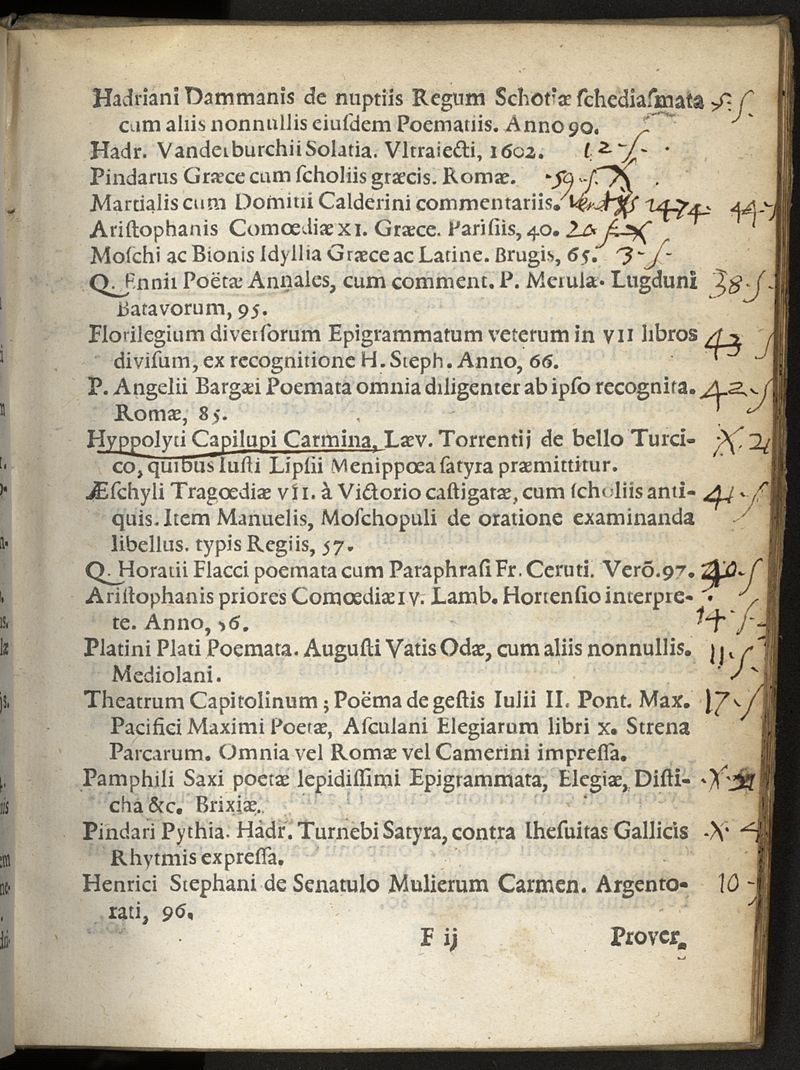 Hadriani Dammanis de nuptiis Regum Schotiæ ſchediaſmata
cum aliis nonnullis eiuſdem Poematiis. Anno 90.
Hadr. Vanderburchii Solatia. Vltraiecti, 1602. 12-ſ-
Pindarus Græce cum ſcholiis græcis. Romæ. 59-ſ
Martialis cum Domitii Calderini commentariis.
Ariſtophanis Comœdiæ XI. Græce. Pariſiis, 40. 20 ſ
Moſchi ac Bionis Idyllia Græce ac Latine. Brugis, 65. 3-ſ-
Q. Ennii Poëtæ Annales, cum comment. P. Merulæ. Lugduni 38-ſ
Batavorum, 95.
Florilegium diverſorum Epigrammatum veterum in VII libros 43 ſ
diviſum, ex recognitione H. Steph. Anno, 66.
P. Angelii Bargæi Poemata omnia diligenter ab ipſo recognita. 42-ſ
Romæ, 85.
Hyppolyti Capilupi Carmina, Læv. Torrentij de bello Turci-
co, quibus Iuſti Lipſii Menippœa ſatyra præmittitur.
Æſchyli Tragœdiæ VII. à Victorio caſtigatæ, cum ſcholiis anti- 41-ſ
quis. Item Manuelis, Moſchopuli de oratione examinanda
libellus. typis Regiis, 57.
Q. Horatii Flacci poemata cum Paraphraſi Fr. Ceruti. Verõ. 97.
Ariſtophanis priores Comœdiæ IV. Lamb. Hortenſio interpre-
te. Anno, 56. 14-ſ-
Platini Plati Poemata. Auguſti Vatis Odæ, cum aliis nonnullis. 11-ſ
Mediolani.
Theatrum Capitolinum; Poëma de geſtis Iulii II. Pont. Max. 17-ſ
Pacifici Maximi Poetæ, Aſculani Elegiarum libri X. Strena
Parcarum. Omnia vel Romæ vel Camerini impreſſa.
Pamphili Saxi poetæ lepidiſſimi Epigrammata, Elegiæ, Diſti-
cha &c. Brixiæ.
Pindari Pythia. Hadr. Turnebi Satyra, contra Iheſuitas Gallicis
Rhytmis expreſſa.
Henrici Stephani de Senatulo Mulierum Carmen. Argento- 10-
rati, 96.
F ij Prover.